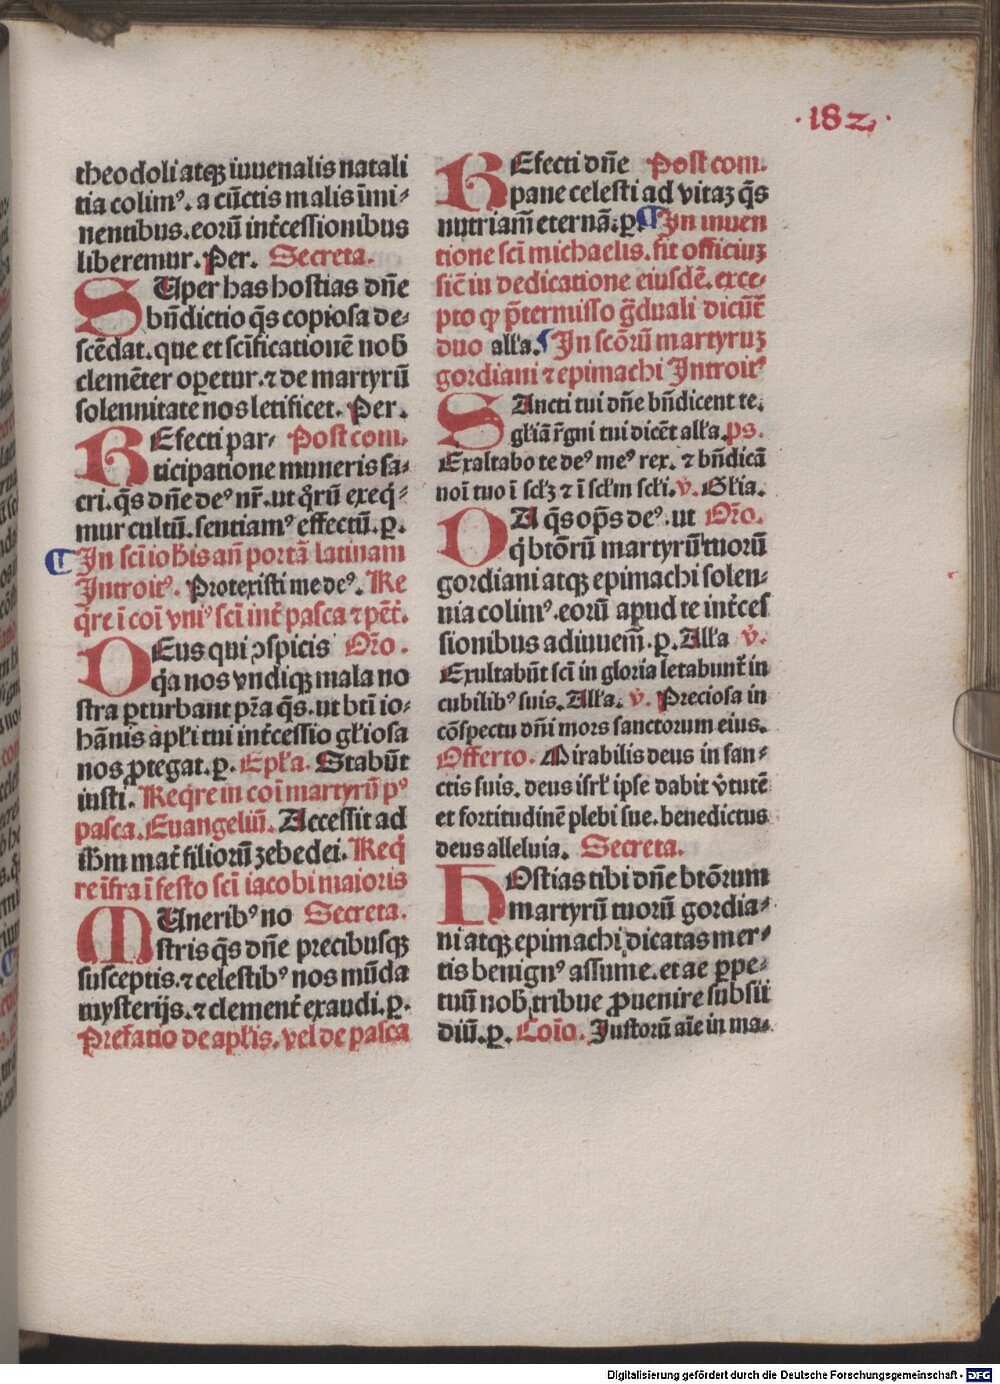 ·182·
theodoli atqꝫ iuuenalis natali
tia colimꝰ. a cūctis malis īmi-
nentibus. eorū intēcessionibus
liberemur. Per. Secreta.
SUper has hostias dn̄e
bn̄dictio q̄s copiosa de-
scēdat. que et scīficationē nob̄
clemēter oꝑetur. ⁊ de martyrū
solennitate nos letificet. Per.
REfecti par- Post com.
ticipatione muneris sa-
cri. q̄s dn̄e deꝰ nr̄. ut q̄rū exeq̄-
mur cultū. sentiamꝰ effectū. ꝑ.
¶ In scī ioh̄is an̄ portā latinam
Introitꝰ. Protexisti me deꝰ. Re
q̄re ī coī vniꝰ scī int̄ pasca ⁊ pēt̄.
DEus qui ↄspicis Or̄o.
q̄a nos vndiqꝫ mala no
stra ꝑturbant pr̄a q̄s. ut bt̄i io-
hānis apl̄i tui int̄cessio gl̄iosa
nos ꝓtegat. ꝑ. Epl̄a. Stabūt
iusti. Req̄re in coī martyrū pꝰ
pasca. Euangeliū. Accessit ad
ih̄m mat̄ filiorū zebedei. Req̄
re īfra ī festo scī iacobi maioris
MUneribꝰ no Secreta.
stris q̄s dn̄e precibusqꝫ
susceptis. ⁊ celestibꝰ nos mūda
mysterijs. ⁊ clement̄ exaudi. ꝑ.
Prefatio de apl̄is. vel de pasca
REfecti dn̄e Post com.
pane celesti ad vitaꝫ q̄s
nutriam̄ eternā. ꝑ. ¶ In inuen
tione scī michaelis. fit officiuꝫ
sic̄ in dedicatione eiusdē. exce-
pto ꝙ p̄termisso ḡduali dicūt̄
duo all̄a. ¶ In scōrū martyruꝫ
gordiani ⁊ epimachi Introitꝰ
SAncti tui dn̄e bn̄dicent te.
gl̄iā r̄gni tui dicēt all̄a. ps.
Exaltabo te deꝰ meꝰ rex. ⁊ bn̄dicā
noī tuo ī scl̄ꝫ ⁊ ī scl̄m scl̄i. v̄. Gl̄ia.
DA q̄s op̄s deꝰ. ut Or̄o.
q̄ btōrū martyrū tuorū
gordiani atqꝫ epimachi solen-
nia colimꝰ. eorū apud te int̄ces
sionibus adiuuem̄. ꝑ. All̄a v̄.
Exultabūt scī in gloria letabunt̄ in
cubilibꝰ suis. All̄a. v̄. Preciosa in
cōspectu dn̄i mors sanctorum eius.
Offerto. Mirabilis deus in san-
ctis suis. deus isrl̄ ipse dabit v̄tutē
et fortitudinē plebi sue. benedictus
deus alleluia. Secreta.
HOstias tibi dn̄e btōrum
martyrū tuorū gordia-
ni atqꝫ epimachi dicatas mer-
tis benignꝰ assume. et ae ꝑpe-
tuū nob̄ tribue ꝓuenire subsi-
diū. ꝑ. Coīo. Iustorū aīe in ma-
Digitalisierung gefördert durch die Deutsche Forschungsgemeinschaft - DFG